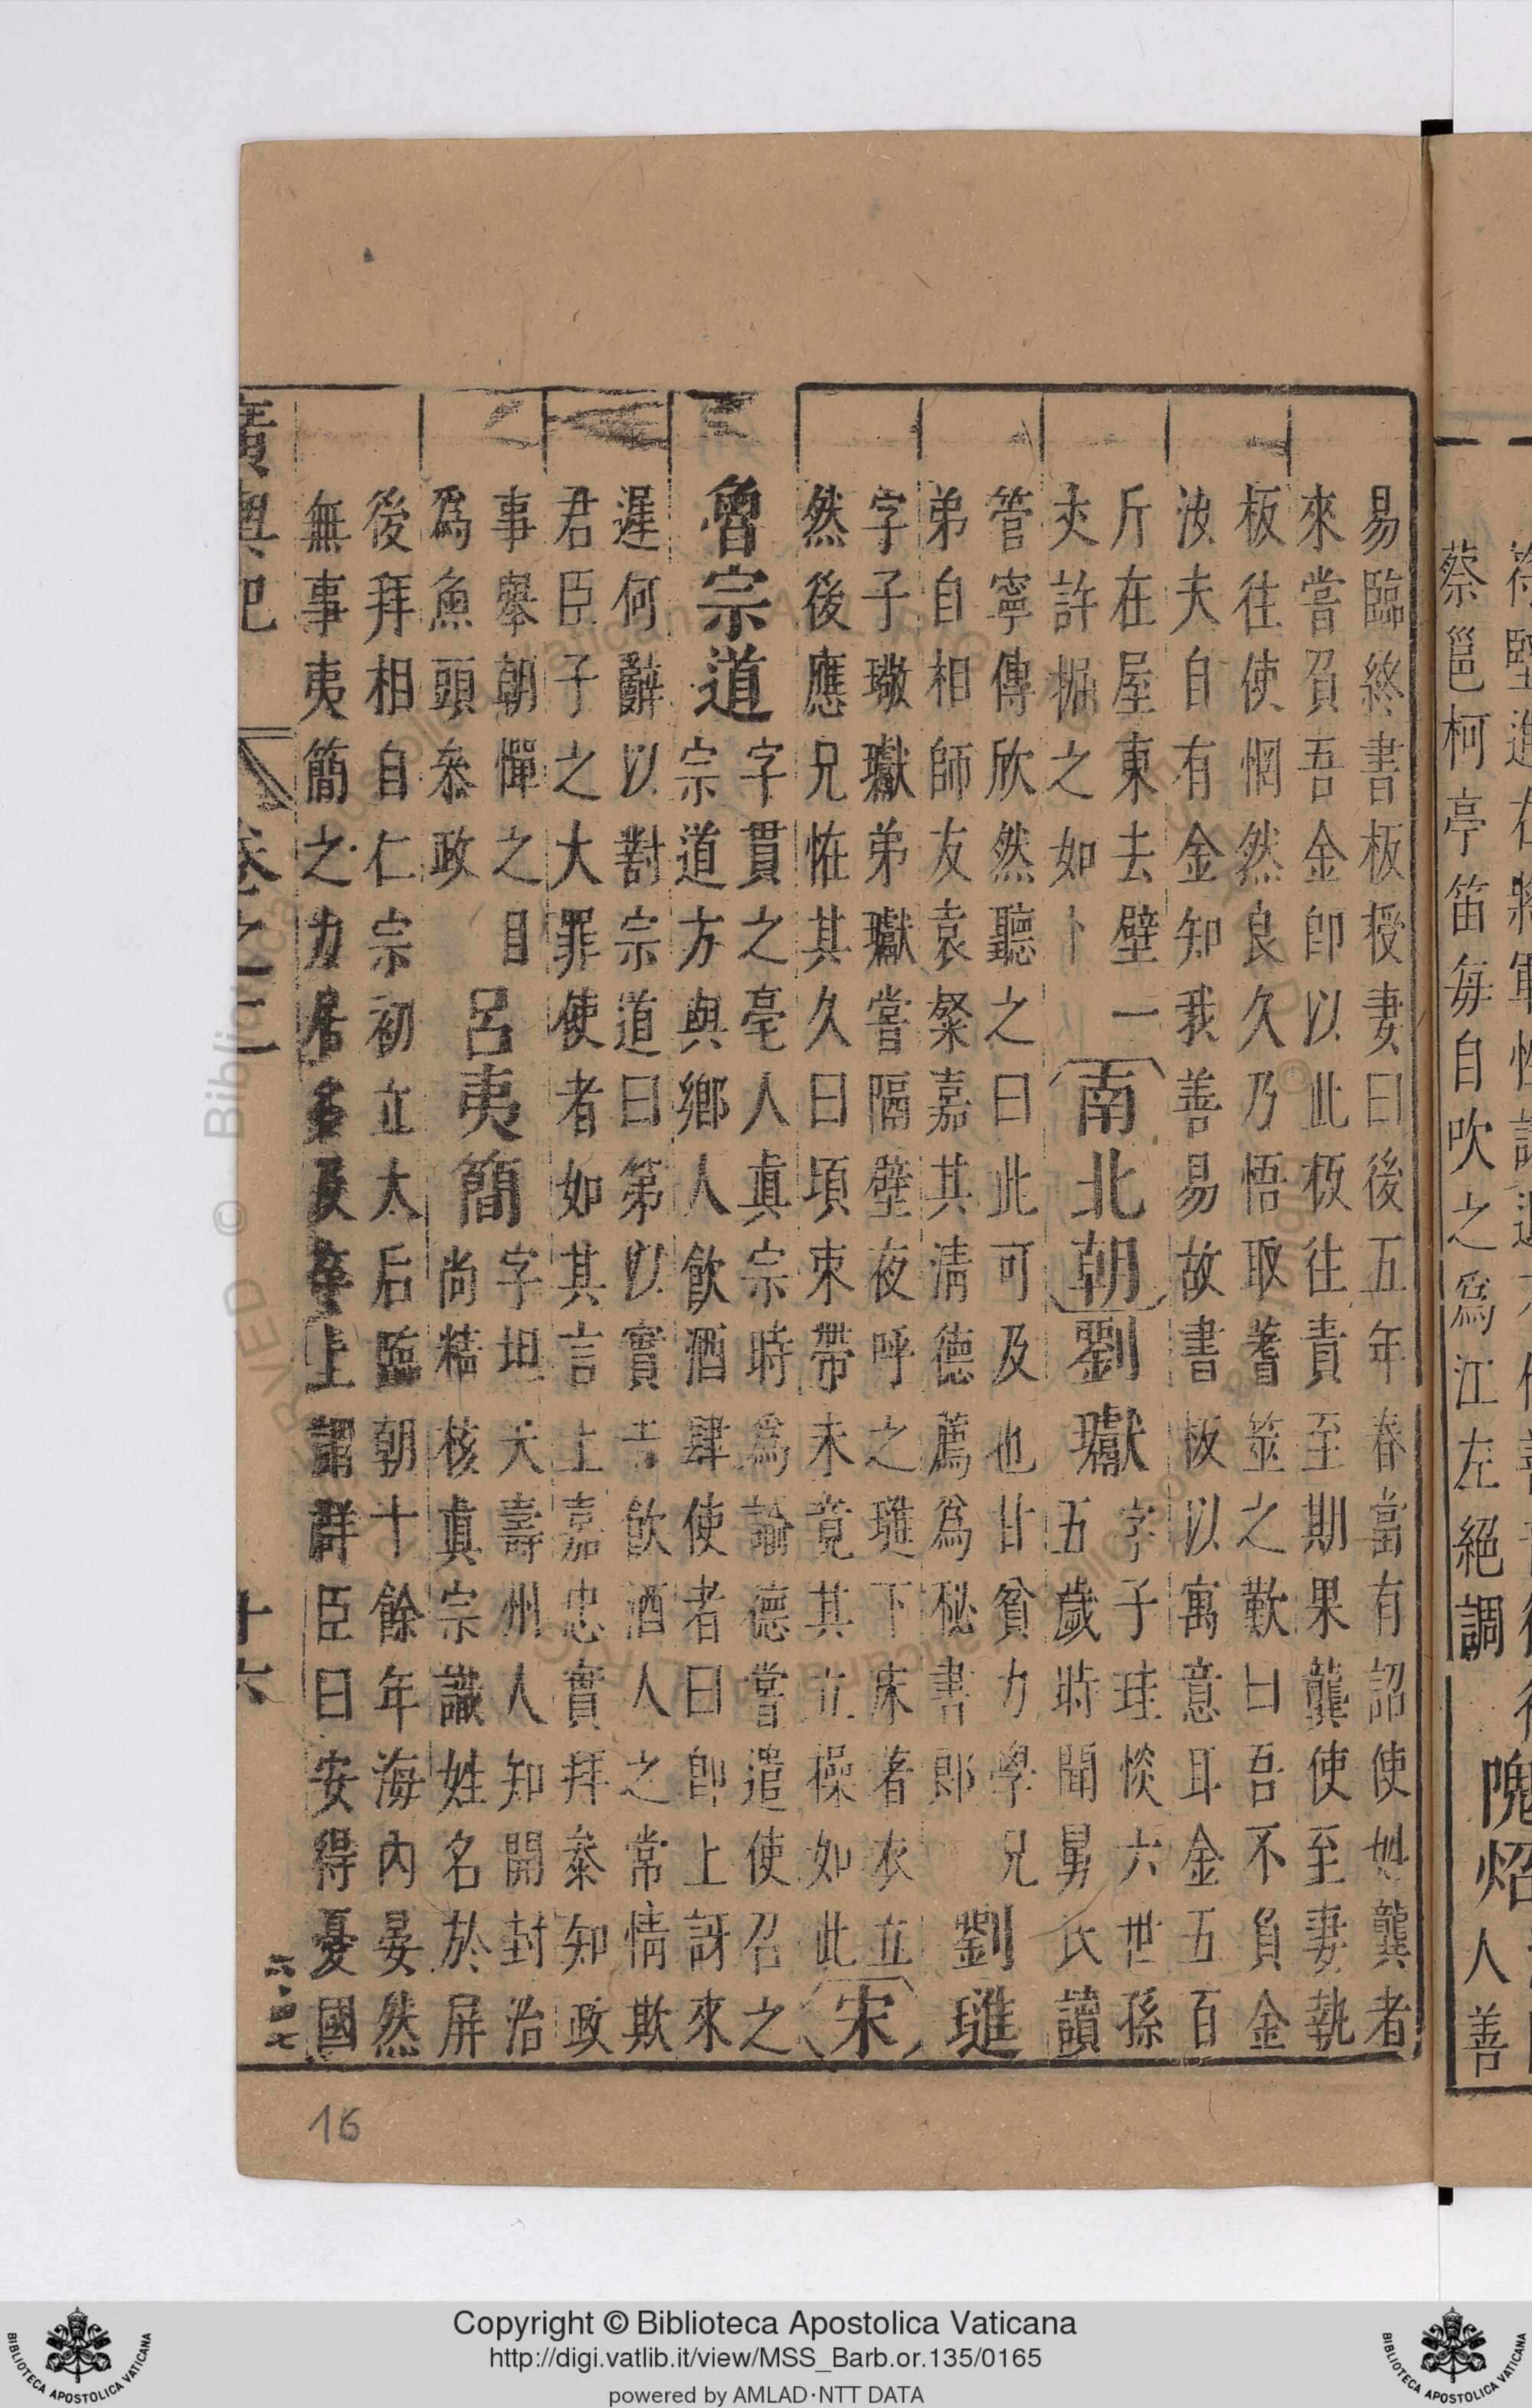 蔡邕柯亭笛每自吹之爲江左絕調
隗炤
人善
易臨終書板授妻曰後五年春當有詔使姓龔者
來嘗負吾金即以此板往責至期果龔使至妻執
板往使惘然良久乃悟取蓍筮之歎曰吾不負金
汝夫自有金知我善易故書板以寓意耳金五百
斤在屋東去壁一
夾許掘之如卜
南北朝
劉瓛
字子珪惔六世孫
五歲時聞舅氏讀
管寧傳欣然聽之曰此可及也甘貧力學兄
弟自相師友袁粲嘉其清德薦爲秘書郎
劉璡
字子璥瓛弟瓛嘗隔壁夜呼之璡下床著衣立
然後應兄怪其久曰頃束帶未竟其立操如此
宋
魯宗道
字貫之亳人真宗時爲諭德嘗遣使召之
宗道方與鄉人飲酒肆使者曰即上訝來
遲何辭以對宗道曰第以實告飲酒人之常情欺
君臣子之大罪使者如其言上嘉忠實拜叅知政
事舉朝憚之目
爲魚頭叅政
呂夷簡
字坦夫壽州人知開封治
尚精核真宗識姓名於屏
後拜相自仁宗初立太后臨朝十餘年海內晏然
無事夷簡之力居多及卒上謂群臣曰安得憂國
廣輿記
卷之二
十六
16
Copyright © Biblioteca Apostolica Vaticana
http://digi.vatlib.it/view/MSS_Barb.or.135/0165
powered by AMLAD·NTT DATA
BIBLIOTECA APOSTOLICA VATICANA
BIBLIOTECA APOSTOLICA VATICANA